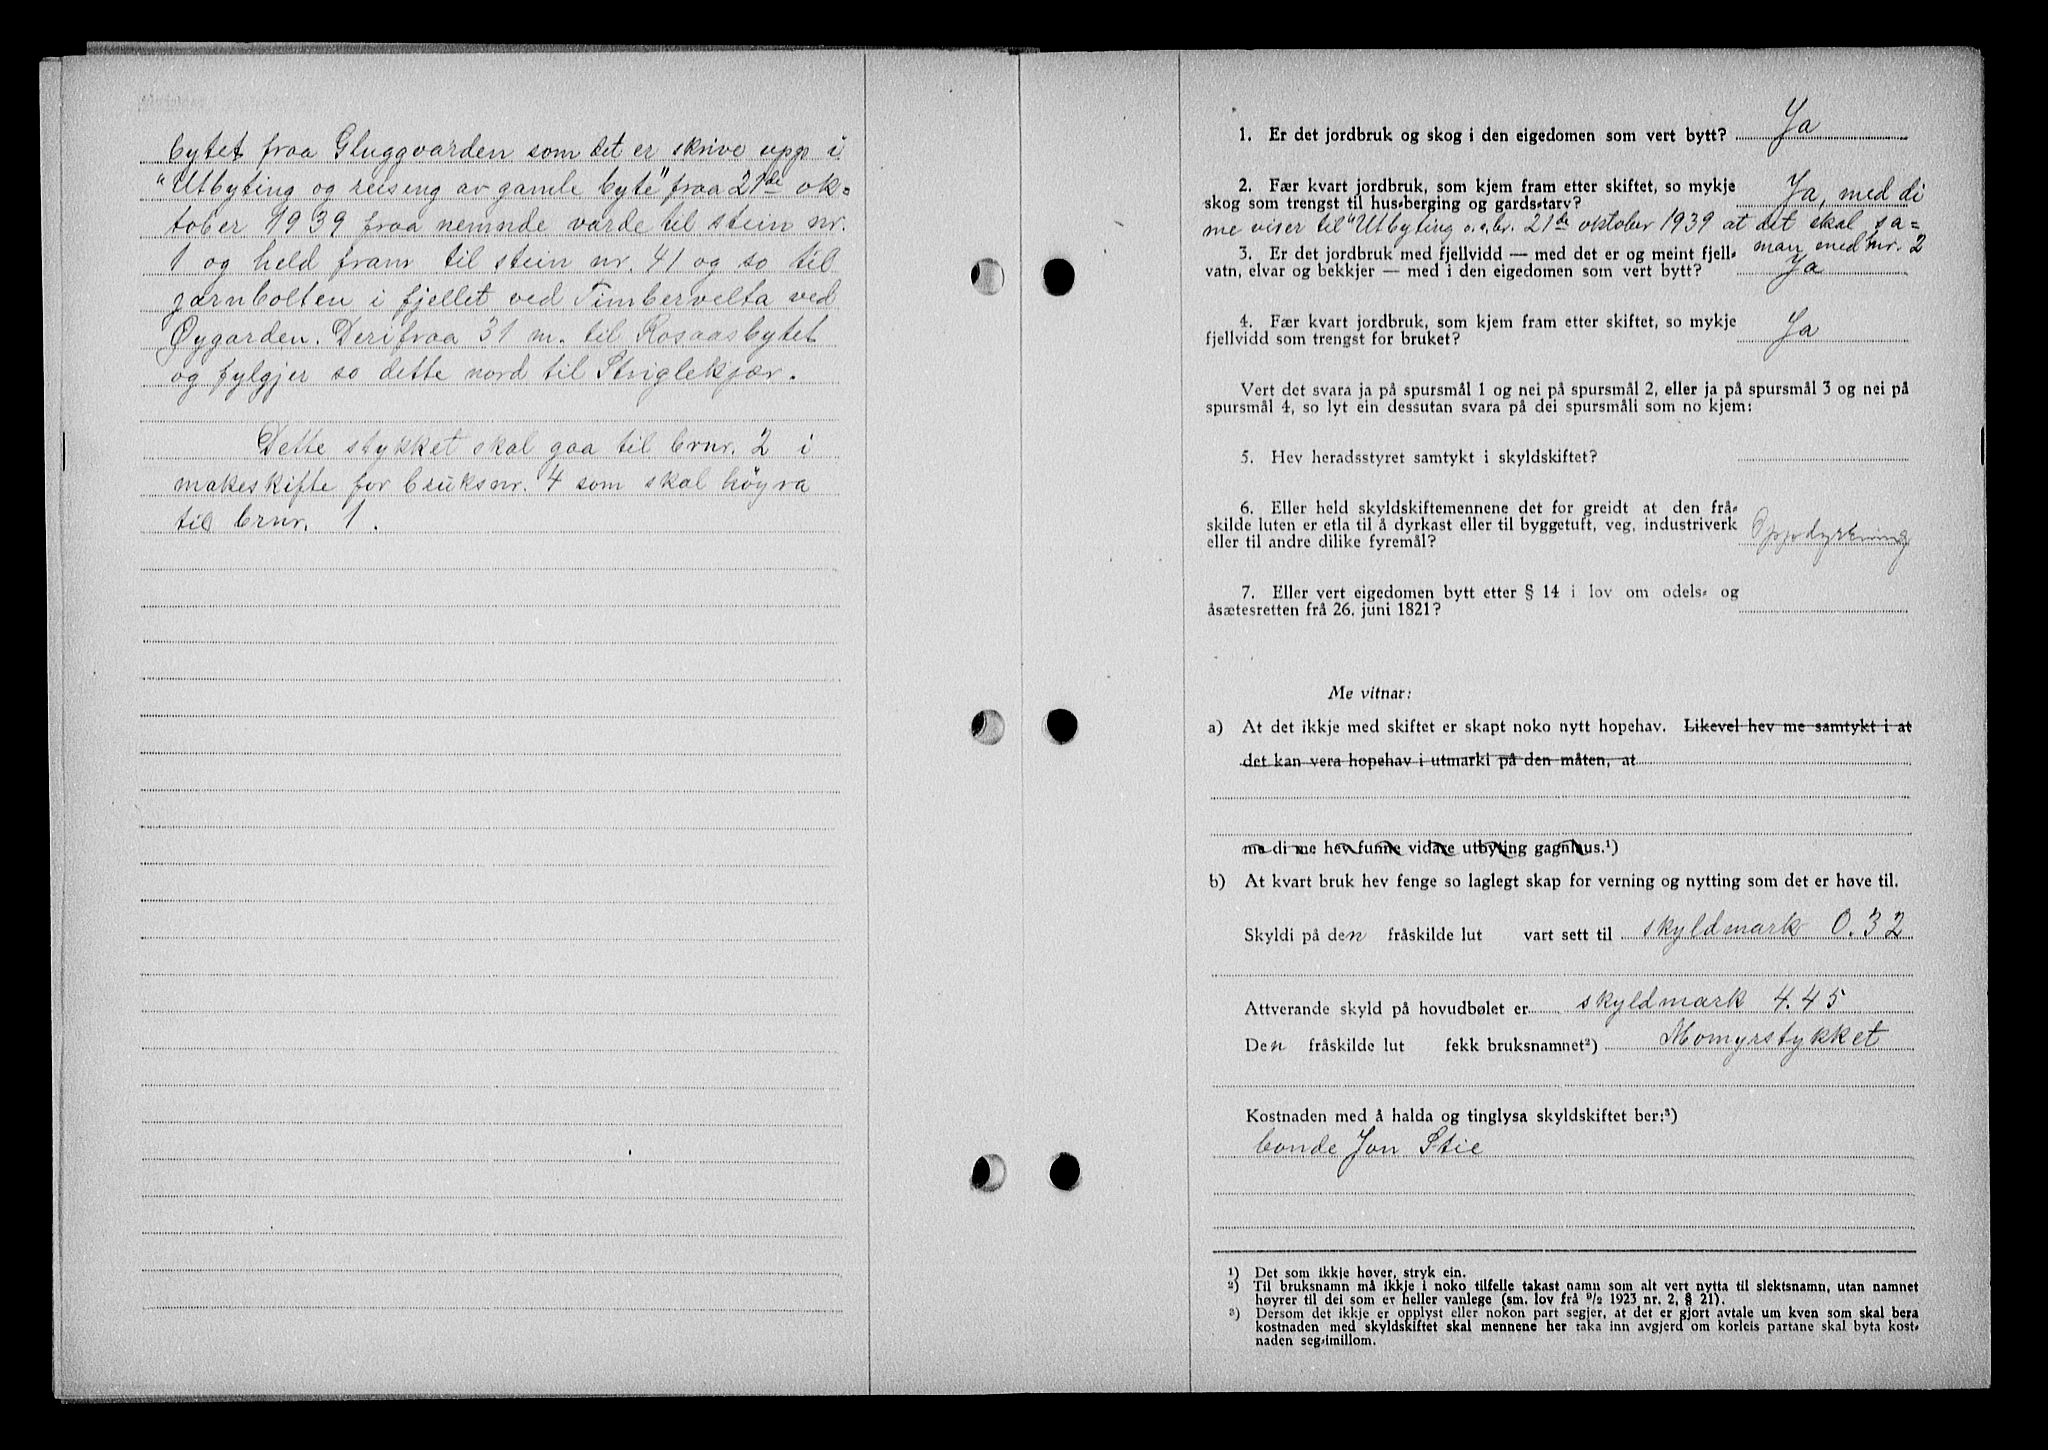 bytet fraa Gluggvarden som det er skrive upp i
"Utbyting og reising av gamle byte" fraa 21de ok=
tober 1939 fraa nemnde varde til stein nr.
1 og held fram til stein nr. 41 og so til
jarnbolten i fjellet ved Timbervelta ved
Øygarden. Derifraa 31 m. til Rosaasbytet
og fylgjer so dette nord til Stiglekjær.
Dette stykket skal gaa til brnr. 2 i
makeskifte for bruksnr. 4 som skal höyra
til brnr. 1.
1. Er det jordbruk og skog i den eigedomen som vert bytt? Ja
2. Fær kvart jordbruk, som kjem fram etter skiftet, so mykje
skog som trengst til hus-berging og gards-tarv? Ja, med di
me viser til "Utbyting o.s.br. 21de oktober 1939 at det skal sa=
man med bnr. 2
3. Er det jordbruk med fjellvidd — med det er og meint fjell-
vatn, elvar og bekkjer — med i den eigedomen som vert bytt? Ja
4. Fær kvart jordbruk, som kjem fram etter skiftet, so mykje
fjellvidd som trengst for bruket? Ja
Vert det svara ja på spursmål 1 og nei på spursmål 2, eller ja på spursmål 3 og nei på
spursmål 4, so lyt ein dessutan svara på dei spursmåli som no kjem:
5. Hev heradsstyret samtykt i skyldskiftet?
6. Eller held skyldskiftemennene det for greidt at den frå-
skilde luten er etla til å dyrkast eller til byggetuft, veg, industriverk
eller til andre dilike fyremål? Oppdyrkning
7. Eller vert eigedomen bytt etter § 14 i lov om odels- og
åsætesretten frå 26. juni 1821?
Me vitnar:
a) At det ikkje med skiftet er skapt noko nytt hopehav. Likevel hev me samtykt i at
det kan vera hopehav i utmarki på den måten, at
me di me hev funne vidare utbyting gagnlaus.¹)
b) At kvart bruk hev fenge so laglegt skap for verning og nytting som det er høve til.
Skyldi på den fråskilde lut vart sett til skyldmark 0.32
Attverande skyld på hovudbølet er skyldmark 4.45
Den fråskilde lut fekk bruksnamnet²) Momyrstykket
Kostnaden med å halda og tinglysa skyldskiftet ber:³)
bonde Jon Stie
¹) Det som ikkje høver, stryk ein.
²) Til bruksnamn må ikkje i noko tilfelle takast namn som alt vert nytta til slektsnamn, utan namnet
høyrer til dei som er heller vanlege (sm. lov frå 9/2 1923 nr. 2, § 21).
³) Dersom det ikkje er opplyst eller nokon part segjer, at det er gjort avtale um kven som skal bera
kostnaden med skyldskiftet skal mennene her taka inn avgjerd om korleis partane skal byta kost-
naden seg-imillom.